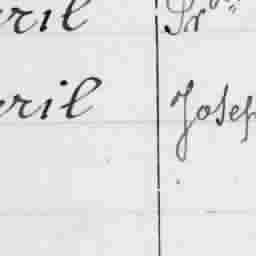 ril
ril Josep